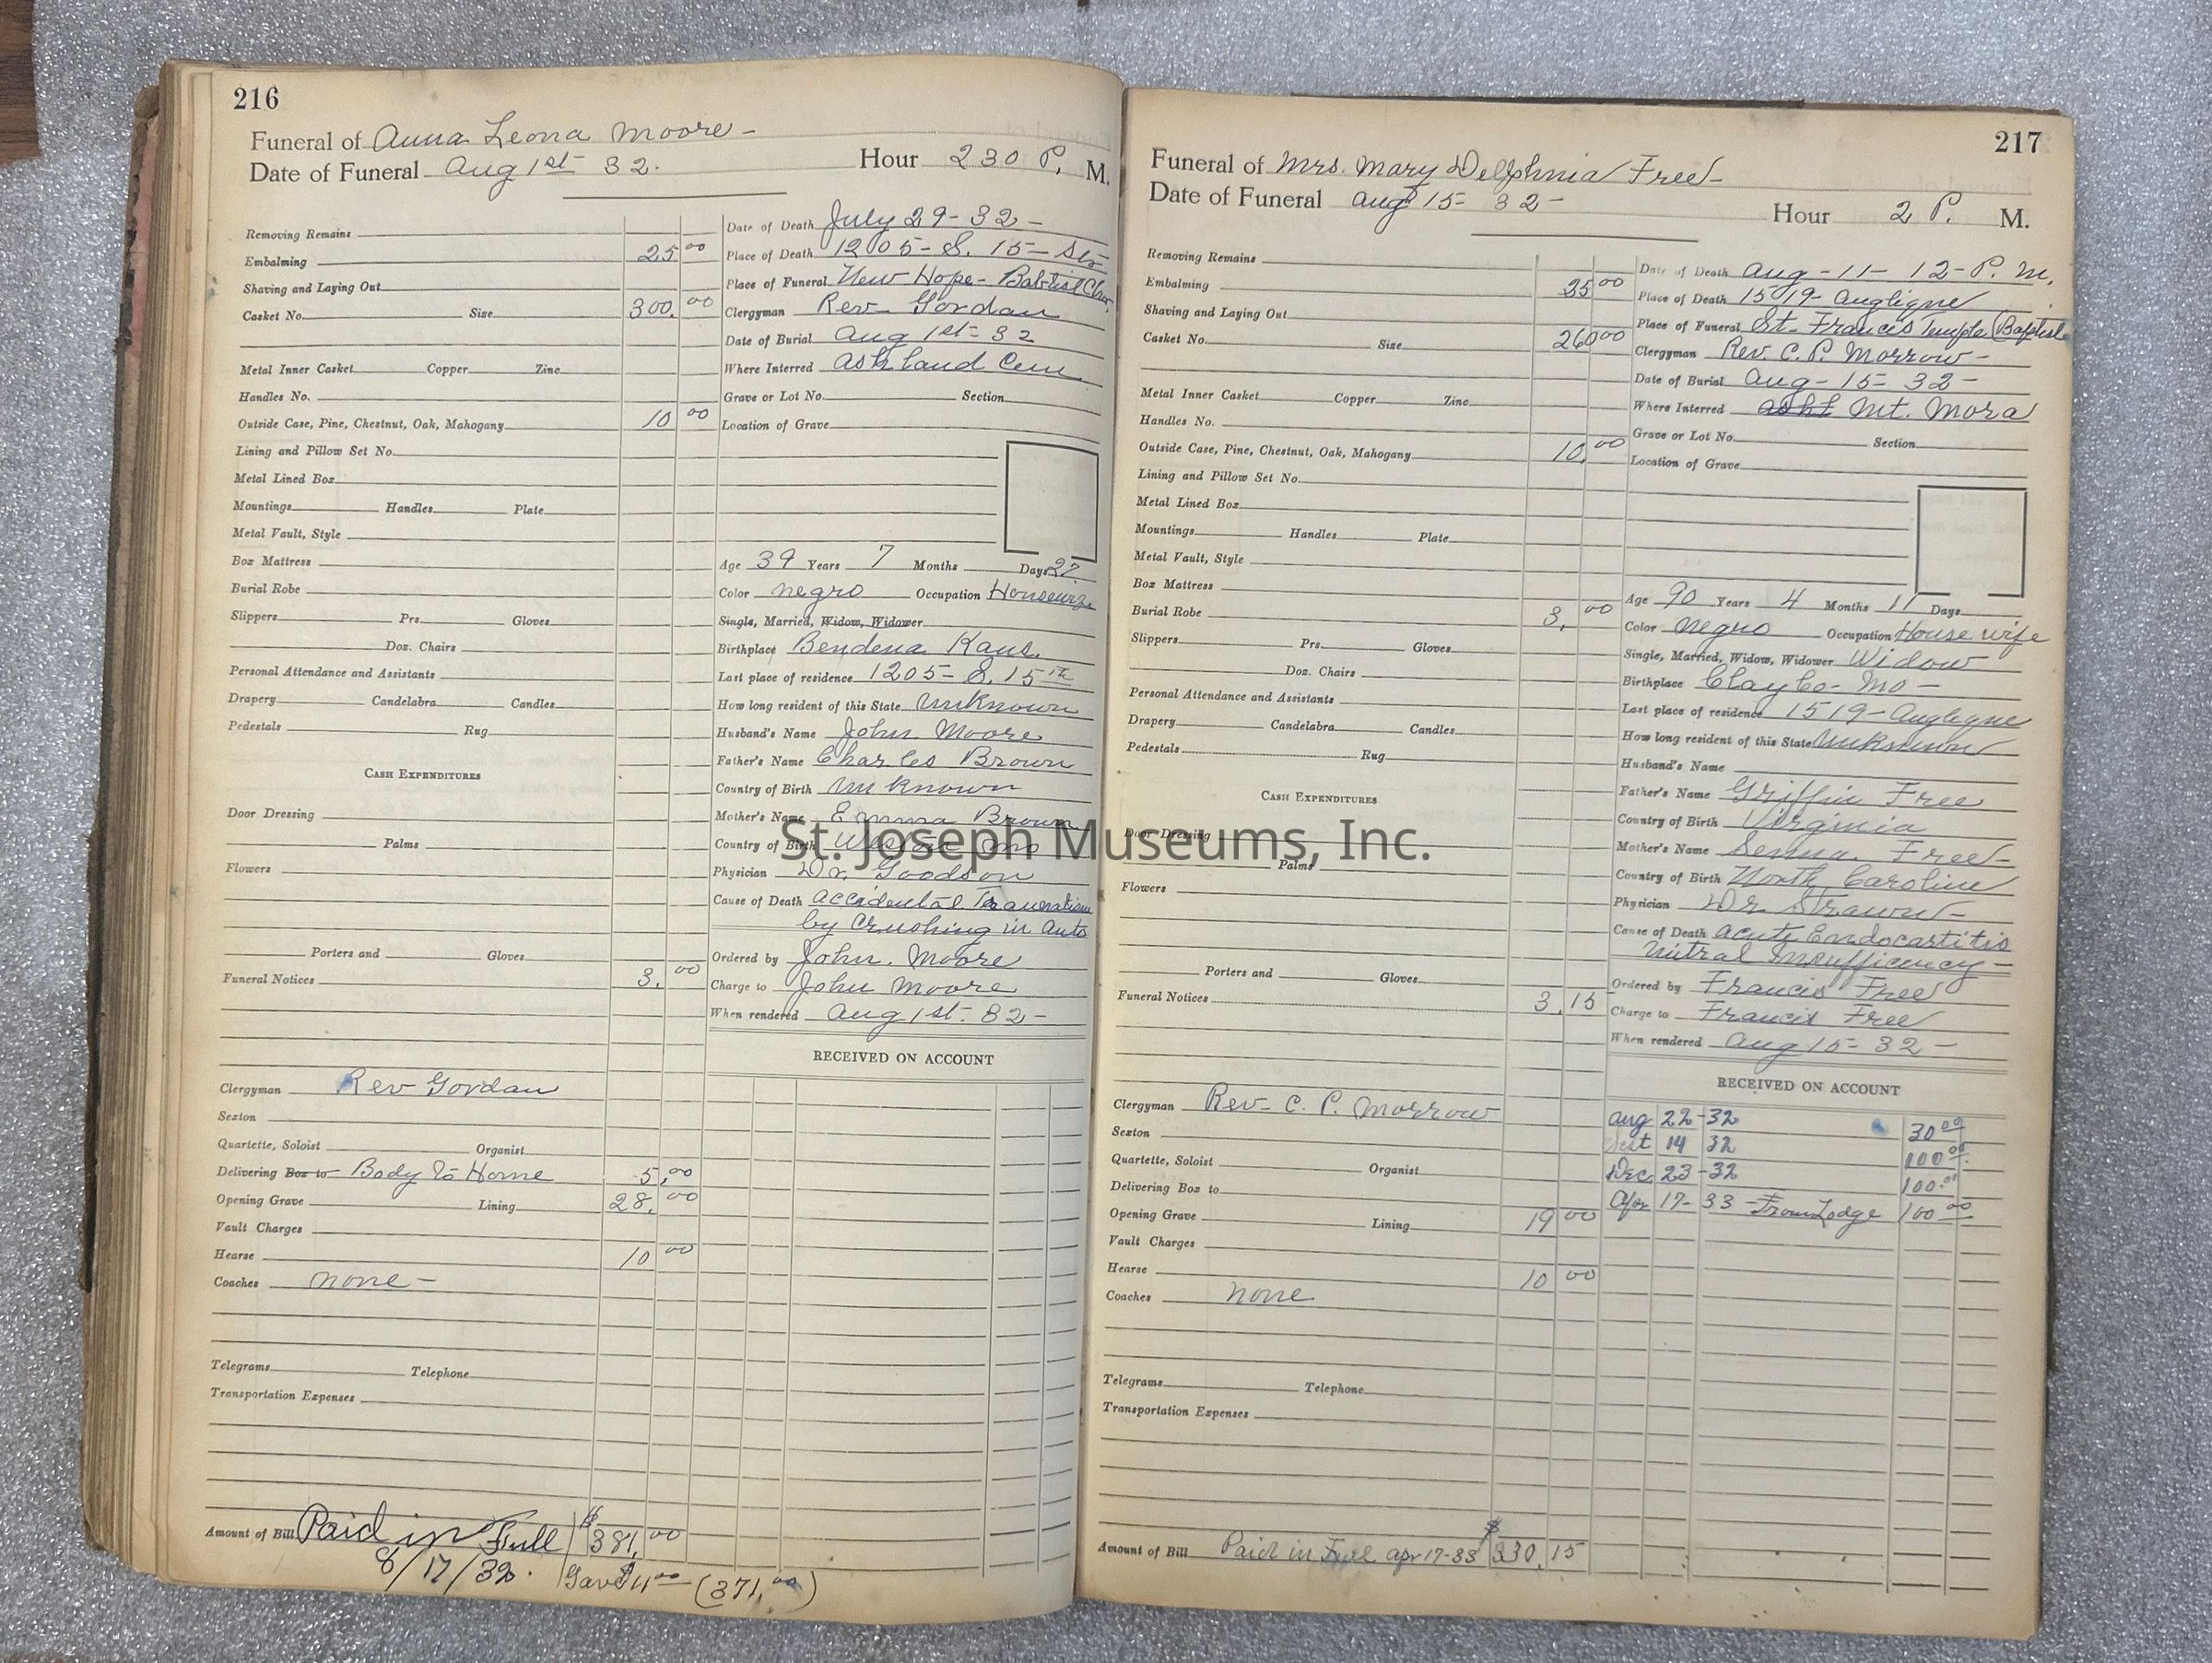 216
Funeral of Anna Leona Moore-
Date of Funeral Aug 1st 32. Hour 230 P. M.
Removing Remains
Embalming 25.00
Shaving and Laying Out
Casket No. Size 300.00
Metal Inner Casket Copper Zinc
Handles No.
Outside Case, Pine, Chestnut, Oak, Mahogany 10 00
Lining and Pillow Set No.
Metal Lined Box
Mountings Handles Plate
Metal Vault, Style
Box Mattress
Burial Robe
Slippers Prs. Gloves
Doz. Chairs
Personal Attendance and Assistants
Drapery Candelabra Candles
Pedestals Rug
CASH EXPENDITURES
Door Dressing
Palms
Flowers
Porters and Gloves
Funeral Notices 3.00
Clergyman Rev Gordan
Sexton
Quartette, Soloist Organist
Delivering Box to Body To Home 5.00
Opening Grave Lining 28.00
Vault Charges
Hearse 10 00
Coaches none-
Telegrams Telephone
Transportation Expenses
Amount of Bill Paid in Full $381.00
8/17/32. (371.00)
Date of Death July 29-32-
Place of Death 1205-S. 15-Sts
Place of Funeral New Hope-Babtist Chur.
Clergyman Rev- Gordan
Date of Burial Aug 1st-32
Where Interred Ashland Cem
Grave or Lot No. Section
Location of Grave
Age 39 Years 7 Months Days 27
Color negro Occupation Housewife
Single, Married, Widow, Widower
Birthplace Bendena Kans.
Last place of residence 1205-S. 15th
How long resident of this State Unknown
Husband's Name John Moore
Father's Name Charles Brown
Country of Birth Unknown
Mother's Name Emma Brown
Country of Birth Weston Mo
Physician Dr. Goodson
Cause of Death Accidental
by Crushing in Auto
Ordered by John. Moore
Charge to John Moore
When rendered Aug 1st-32-
RECEIVED ON ACCOUNT
217
Funeral of Mrs. Mary Delphnia Free-
Date of Funeral Aug 15-32- Hour 2 P. M.
Removing Remains
Embalming 25 00
Shaving and Laying Out
Casket No. Size 260 00
Metal Inner Casket Copper Zinc
Handles No.
Outside Case, Pine, Chestnut, Oak, Mahogany 10.00
Lining and Pillow Set No.
Metal Lined Box
Mountings Handles Plate
Metal Vault, Style
Box Mattress
Burial Robe 3.00
Slippers Prs. Gloves
Doz. Chairs
Personal Attendance and Assistants
Drapery Candelabra Candles
Pedestals Rug
CASH EXPENDITURES
Door Dressing
Palms
Flowers
Porters and Gloves
Funeral Notices 3.15
Clergyman Rev- C. P. Morrow
Sexton
Quartette, Soloist Organist
Delivering Box to
Opening Grave Lining 19 00
Vault Charges
Hearse 10 00
Coaches none
Telegrams Telephone
Transportation Expenses
Amount of Bill Paid in Full Apr 17-33 $330.15
Date of Death Aug-11-12-P.M.
Place of Death 1519-Angligne
Place of Funeral St-Francis Temple (Baptist
Clergyman Rev. C. P. Morrow-
Date of Burial Aug-15-32-
Where Interred Asht Mt. Mora
Grave or Lot No. Section
Location of Grave
Age 90 Years 4 Months 11 Days
Color negro Occupation House wife
Single, Married, Widow, Widower Widow
Birthplace Clay Co- Mo-
Last place of residence 1519-Angligne
How long resident of this State Unknown
Husband's Name
Father's Name Griffin Free
Country of Birth Virginia
Mother's Name Senna. Free-
Country of Birth North Caroline
Physician Dr Strawn-
Cause of Death Acute Endocartitis
Mitral Insufficiency-
Ordered by Francis Free
Charge to Francis Free
When rendered Aug 15-32-
RECEIVED ON ACCOUNT
Aug 22-32 30 00
Sept 14 32 100 00
Dec. 23-32 100.00
Apr 17-33-From Lodge 100 00
St. Joseph Museums, Inc.